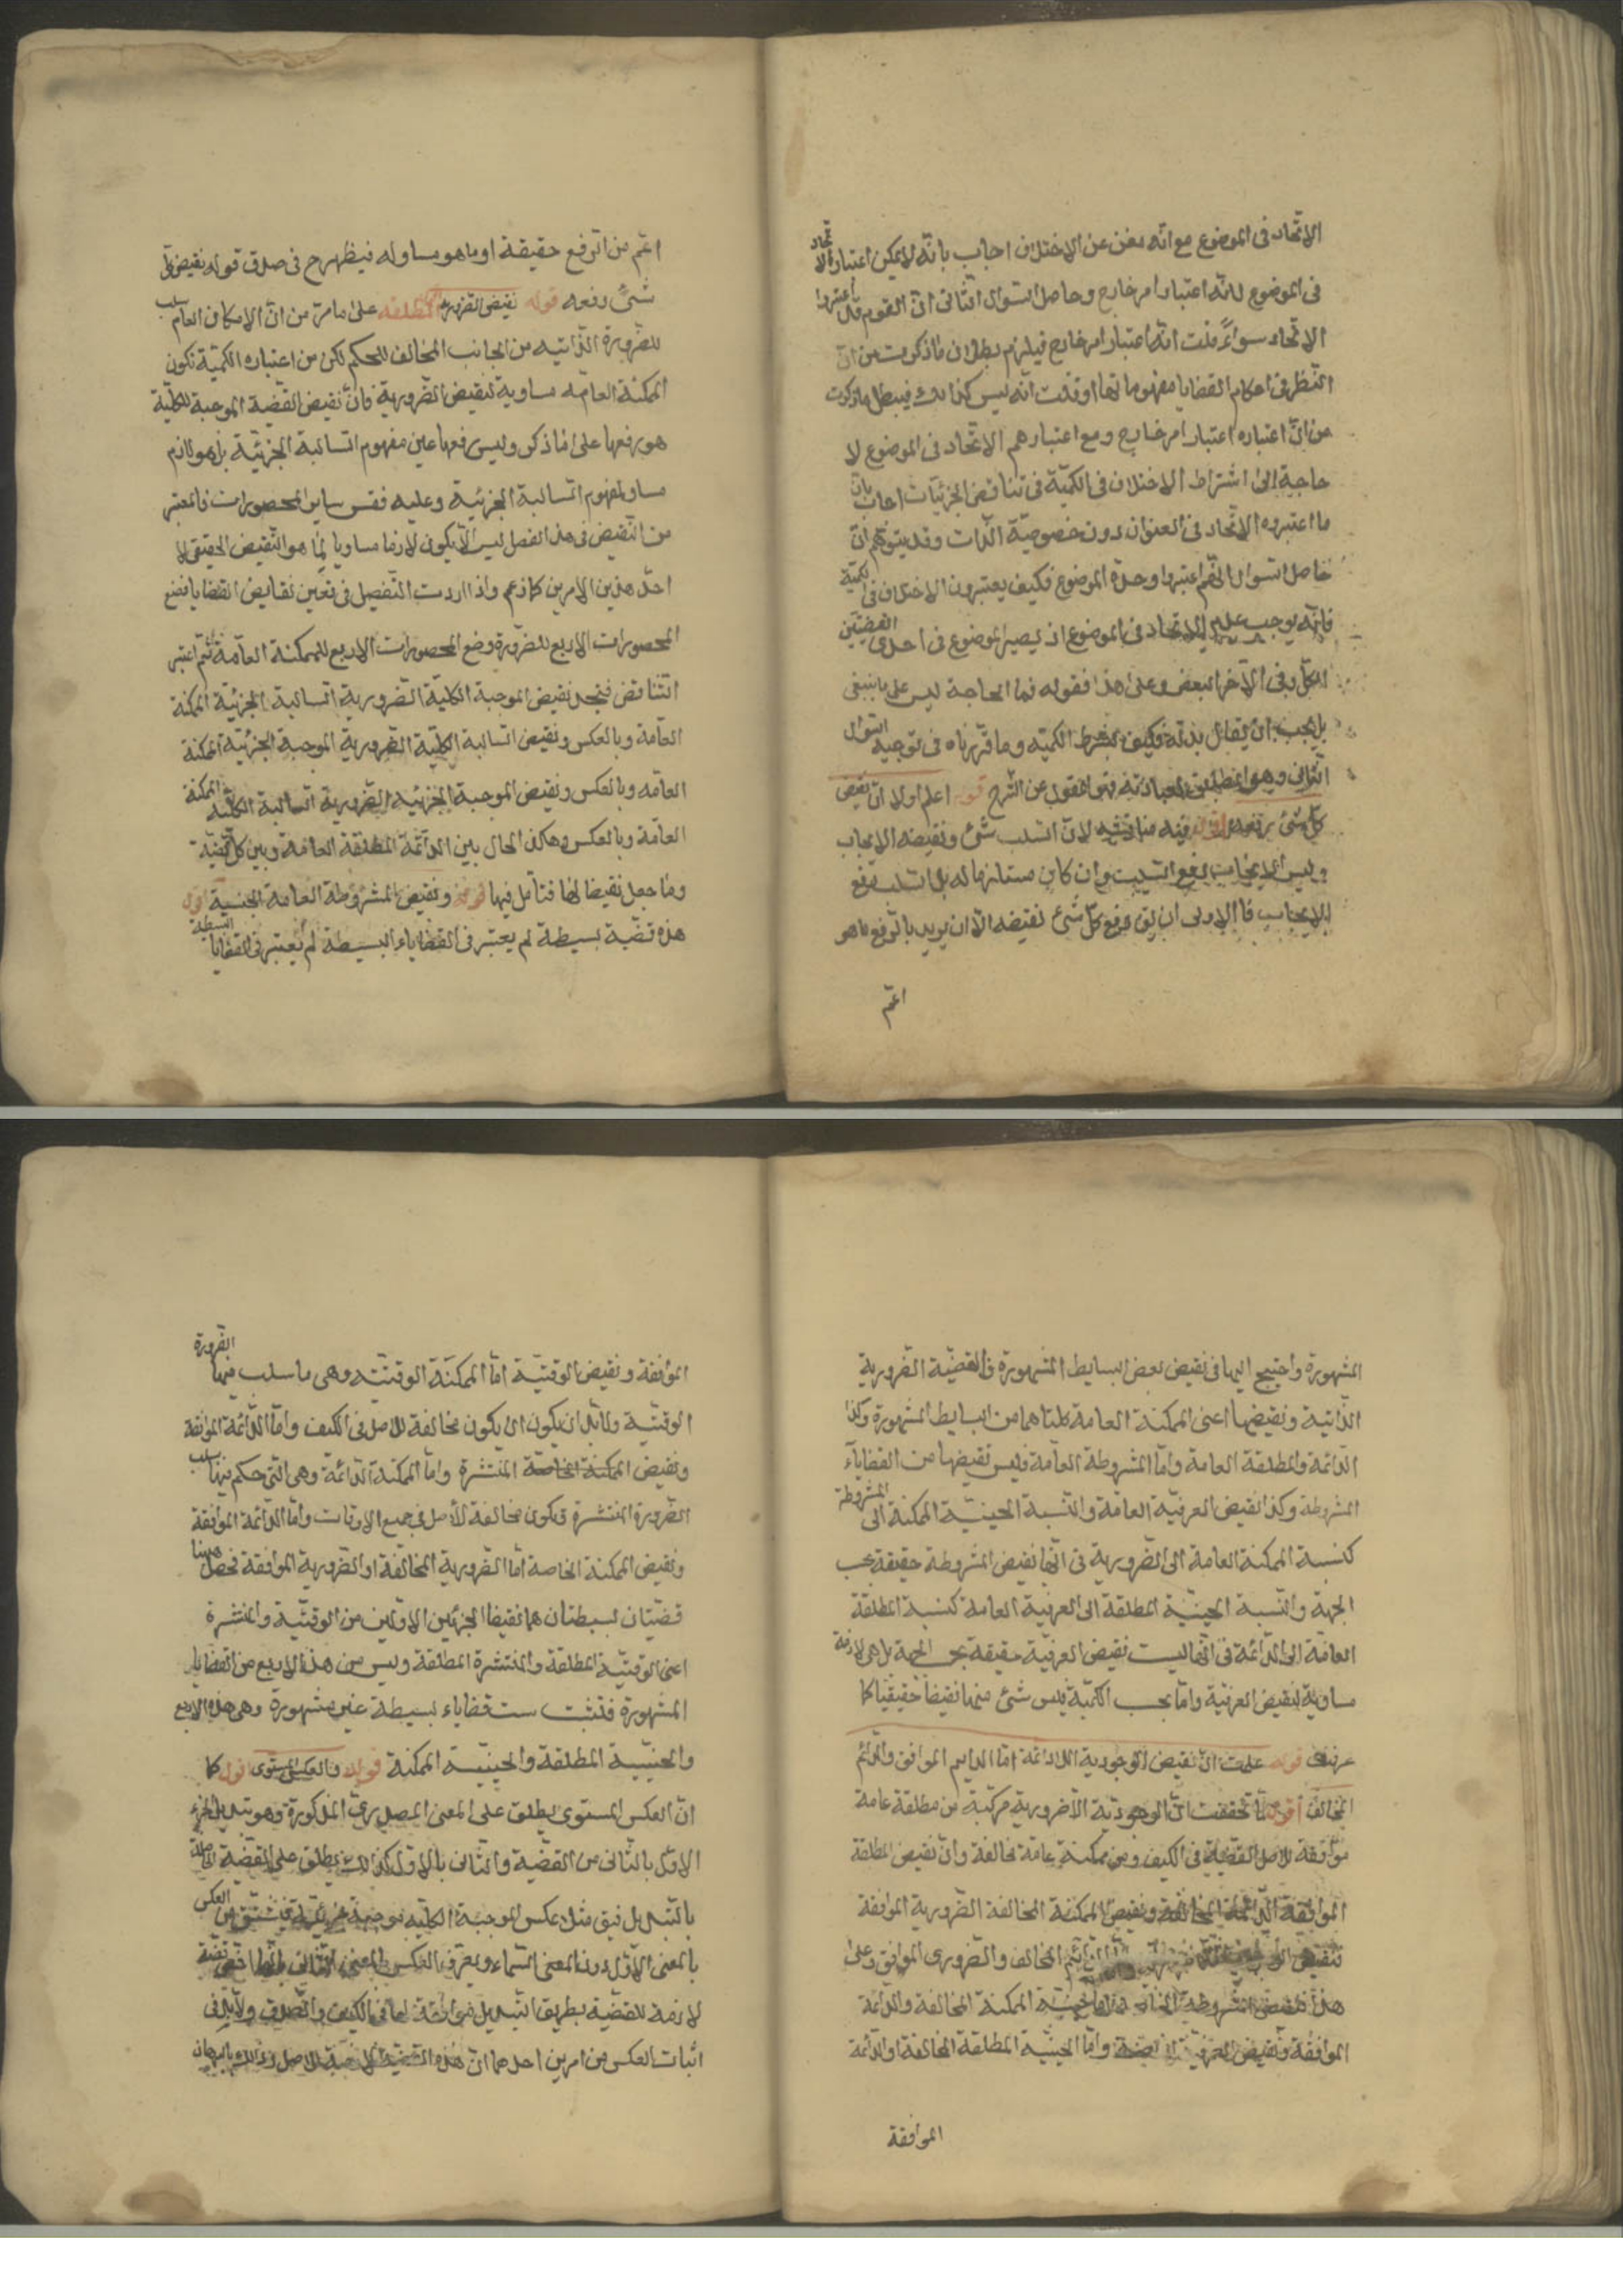 الاتّحاد فى الموضوع مع انّه مغن عن الاختلاف اجاب بانّه لا يمكن اعتبار الاتّحاد
فى الموضوع لانّه اعتبار امر خارج وحاصل السّوال الثّانى انّ القوم قد اعتبروا
الاتّحاد سواءً قلت انّه اعتبار امر خارج فيلزم بطلان ما ذكرت من انّ
النّظر فى احكام القضايا مفهوماتها او قلت انّه ليس كذلك فيبطل ما ذكرت
من انّ اعتباره اعتبار امر خارج ومع اعتبارهم الاتّحاد فى الموضوع لا
حاجة الى اشتراط الاختلاف فى الكميّة فى تناقض الجزئيّات اجاب بانّ
ما اعتبروه الاتّحاد فى العنوان دون خصوصيّة الذّات وقد يتوهّم انّ
حاصل السّوال انّهم اعتبروا وحدة الموضوع فكيف يعتبرون الاختلاف فى الكميّة
فانّه يوجب عدم الاتّحاد فى الموضوع اذ يصير الموضوع فى احدى القضيّتين
الكلّ وفى الآخر البعض وعلى هذا فقوله فما الحاجة ليس على ما ينبغى
بل يجب ان يقال بدله فكيف يشترط الكميّه وما قرّرناه فى توجيه السّوال
الثّانى وهو المطابق لعبارته هو المنقول عن الشّرح قوله اعلم اولا انّ نقيض
كلّ شئ رفعه اقول فيه مناقشه لانّ السّلب شئ ونقيضه الايجاب
وليس الايجاب رفع السّلب وان كان مستلزما له بل السّلب رفع
الايجاب فالاولى ان يق رفع كلّ شئ نقيضه الّا ان يريد بالرّفع ما هو
اعمّ
اعمّ من الرّفع حقيقة او ما هو مساو له فيظهر ح فى صدق قوله نقيض كلّ
شئ رفعه قوله نقيض الضّروريّة المطلقه على ما مرّ من انّ الامكان العام سلب
للضّرورة الذّاتيه من الجانب المخالف للحكم لكن من اعتباره الكميّة تكون
الممكنة العامّه مساوية لنقيض الضّرورية فانّ نقيض القضية الموجبة الكليّة
هو رفعها على ما ذكر وليس رفعها عين مفهوم السّالبة الجزئيّة بل هو لازم
مساو لمفهوم السّالبة الجزئيّة وعليه فقس ساير المحصورات فالمعتبر
من النّقيض فى هذا الفصل ليس الّا يكون لازما مساويا لما هو النّقيض الحقيقى لا
احد هذين الامرين كما زعم واذا اردت التّفصيل فى تعين نقايض القضايا فضع
المحصورات الاربع للضّرورة وضع المحصورات الاربع للممكنة العامّة ثم اعتبر
التّناقض فتجد نقيض الموجبة الكليّة الضّرورية السّالبة الجزئية الممكنة
العامّة وبالعكس ونقيض السّالبة الكليّة الضّرورية الموجبة الجزئيّة الممكنة
العامّه وبالعكس ونقيض الموجبة الجزئيه الضّرورية السّالبة الكليّه الممكنة
العامّة وبالعكس وهكذا الحال بين الدّائمة المطلقة العامّة وبين كلّ قضيّة
وما جعل نقيضا لها فتأمّل فيها قوله ونقيض المشروطة العامة الحينية اقول
هذه قضيّة بسيطة لم يعتبر فى القضاياء البسيطة لم يعتبر فى القضايا البسيطة
المشهورة واحتيج اليها فى نقيض بعض البسايط المشهورة فالقضيّة الضّرورية
الذّاتية ونقيضها اعنى الممكنة العامة كلتاهما من البسايط المشهورة وكذا
الدّائمة والمطلقة العامة وامّا المشروطة العامة فليس نقيضها من القضايآء
المشروطة وكذا نقيض العرفيّة العامة والنّسبة الحينيّة الممكنة الى المشروطة
كنسبة الممكنة العامة الى الضّرورية فى انّها نقيض المشروطة حقيقة بحسب
الجهة والنّسبة الحينيّة المطلقة الى العرفية العامة كنسبة المطلقة
العامّة الى الدّائمة فى انّها ليست نقيض العرفيّة حقيقة بحسب الجهة بل هى لازمة
مساوية لنقيض العرفيّة وامّا بحسب الكميّة فليس شئ منها نقيضاً حقيقيّا كما
عرفت قوله علمت انّ نقيض الوجودية اللادائمة امّا الدايم الموافق والدّائم
المخالف اقول لما تحققت انّ الوجوديّة الّاضرورية مركبّة من مطلقة عامة
موافقة للاصل القضيّة فى الكيف ومن ممكنة عامّة مخالفة وانّ نقيض المطلقة
الموافقة الدّائمة المخالفة ونقيض الممكنة المخالفة الضّرورية الموافقة
فنقيض الدّائم المخالف والضّرورى الموافق وعلى
هذا فنقيض المشروطة الخاصة امّا حينيّة الممكنة المخالفة والدّائمة
الموافقة ونقيض العرفيّة الخاصّة وامّا الحينيّة المطلقة المخالفة او الدّائمة
الموافقة
الموافقة ونقيض الوقتيّة امّا الممكنة الوقتيّه وهى ما سلب فيها الضّرورة
الوقتيّة ولا بدّ ان يكون ان يكون مخالفة للاصل فى الكيف وامّا الدّائمة الموافقة
ونقيض الممكنة الخاصة المنتشرة وامّا الممكنة الدّائمة وهى الّتى حكم فيها بسلب
الضّرورة المنتشرة فيكون مخالفة للأصل فى جميع الاوقات وامّا الدّائمة الموافقة
ونقيض الممكنة الخاصة امّا الضّرورية المخالفة او الضّرورية الموافقة فحصل هيهنا
قضيّتان بسيطتان هما نقيضا الجزئين الاوّلين من الوقتيّة والمنتشرة
اعنى الوقتيّة المطلقة والمنتشرة المطلقة وليس من هذه الاربع من القضايا
المشهورة فثبت ست قضاياء بسيطة غير مشهورة وهى هذه الاربع
والحينيّة المطلقة والحينيّة الممكنة قوله فالعكس المستوى اقول كما
انّ العكس المستوى يطلق على المعنى المصدرىّ المذكورة وهو تبديل الجزء
الاوّل بالثّانى من القضيّة والثّانى بالاوّل كذلك يطلق على القضيّة الحاصلة
بالتّبديل فيق مثلا عكس الموجبة الكليّه موجبة جزئيّة فيشتق من العكس
بالمعنى الاوّل دون المعنى الثّانى ويعرّف العكس بالمعنى الثّانى بانّها اخصّ قضيّة
لازمة للقضيّة بطريق التّبديل موافقة لها فى الكيف والصّدق ولا بدّ فى
اثبات العكس من امرين احدهما انّ هذه القضيّة لازمة للاصل وذلك بالبرهان